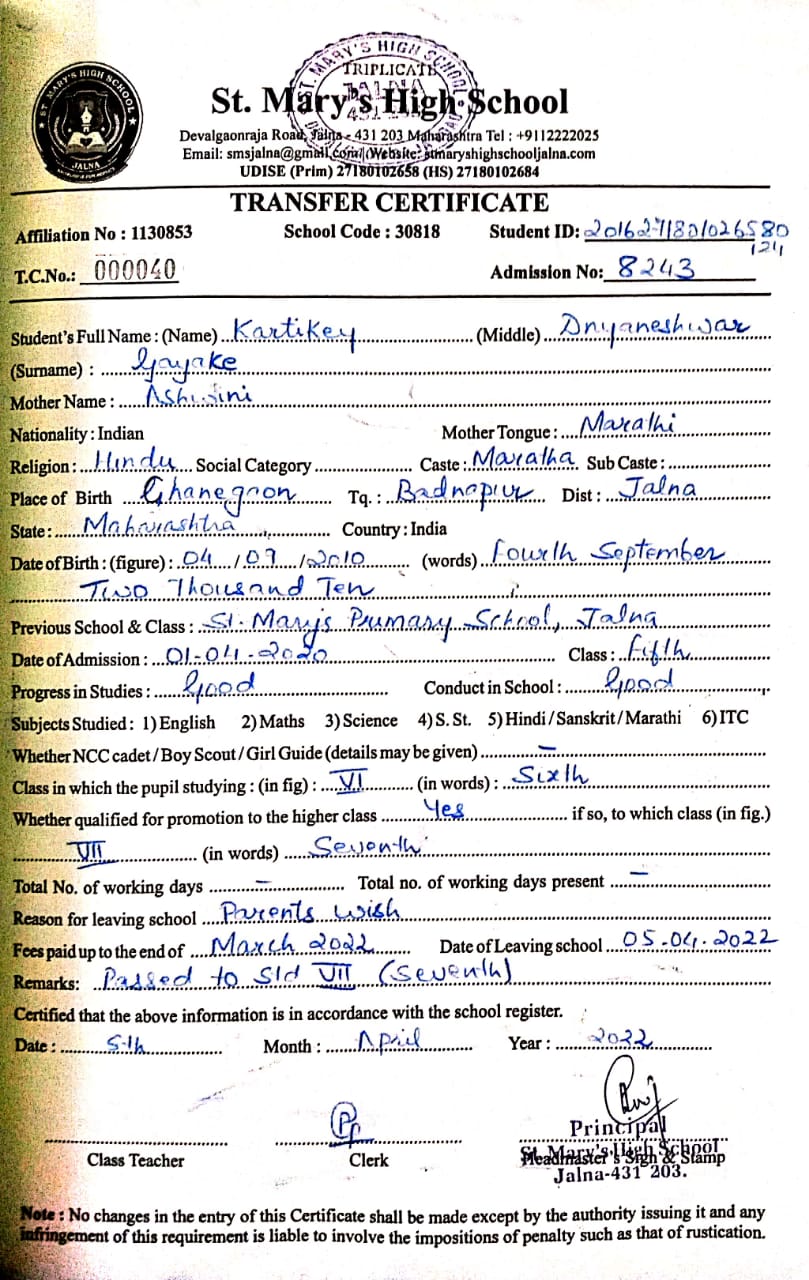 ST MARY'S HIGH SCHOOL
JALNA
ST. MARY'S HIGH SCHOOL
TRIPLICATE
JALNA
St. Mary's High School
Devalgaonraja Road, Jalna - 431 203 Maharashtra Tel : +9112222025
Email: smsjalna@gmail.com/(Website: stmaryshighschooljalna.com
UDISE (Prim) 27180102658 (HS) 27180102684
TRANSFER CERTIFICATE
Affiliation No : 1130853 School Code : 30818 Student ID: 2016271801026580
124
T.C.No.: 000040 Admission No: 8243
Student's Full Name : (Name) Kartikey (Middle) Dnyaneshwar
(Surname) : Gayake
Mother Name : Ashwini
Nationality : Indian Mother Tongue : Marathi
Religion : Hindu Social Category Caste : Maratha Sub Caste :
Place of Birth Ghanegaon Tq. : Badnapur Dist : Jalna
State : Maharashtra Country : India
Date of Birth : (figure) : 04 / 09 / 2010 (words) Fourth September
Two Thousand Ten
Previous School & Class : St. Mary's Primary School, Jalna
Date of Admission : 01-04-2020 Class : Fifth
Progress in Studies : Good Conduct in School : Good
Subjects Studied : 1) English 2) Maths 3) Science 4) S. St. 5) Hindi / Sanskrit / Marathi 6) ITC
Whether NCC cadet / Boy Scout / Girl Guide (details may be given) –
Class in which the pupil studying : (in fig) : VI (in words) : Sixth
Whether qualified for promotion to the higher class Yes if so, to which class (in fig.)
VII (in words) Seventh
Total No. of working days – Total no. of working days present –
Reason for leaving school Parents wish
Fees paid up to the end of March 2022 Date of Leaving school 05-04-2022
Remarks: Passed to Std VII (Seventh)
Certified that the above information is in accordance with the school register.
Date : 5th Month : April Year : 2022
Principal
Class Teacher Clerk Headmaster's Sign & Stamp
St. Mary's High School
Jalna-431 203.
Note : No changes in the entry of this Certificate shall be made except by the authority issuing it and any
infringement of this requirement is liable to involve the impositions of penalty such as that of rustication.